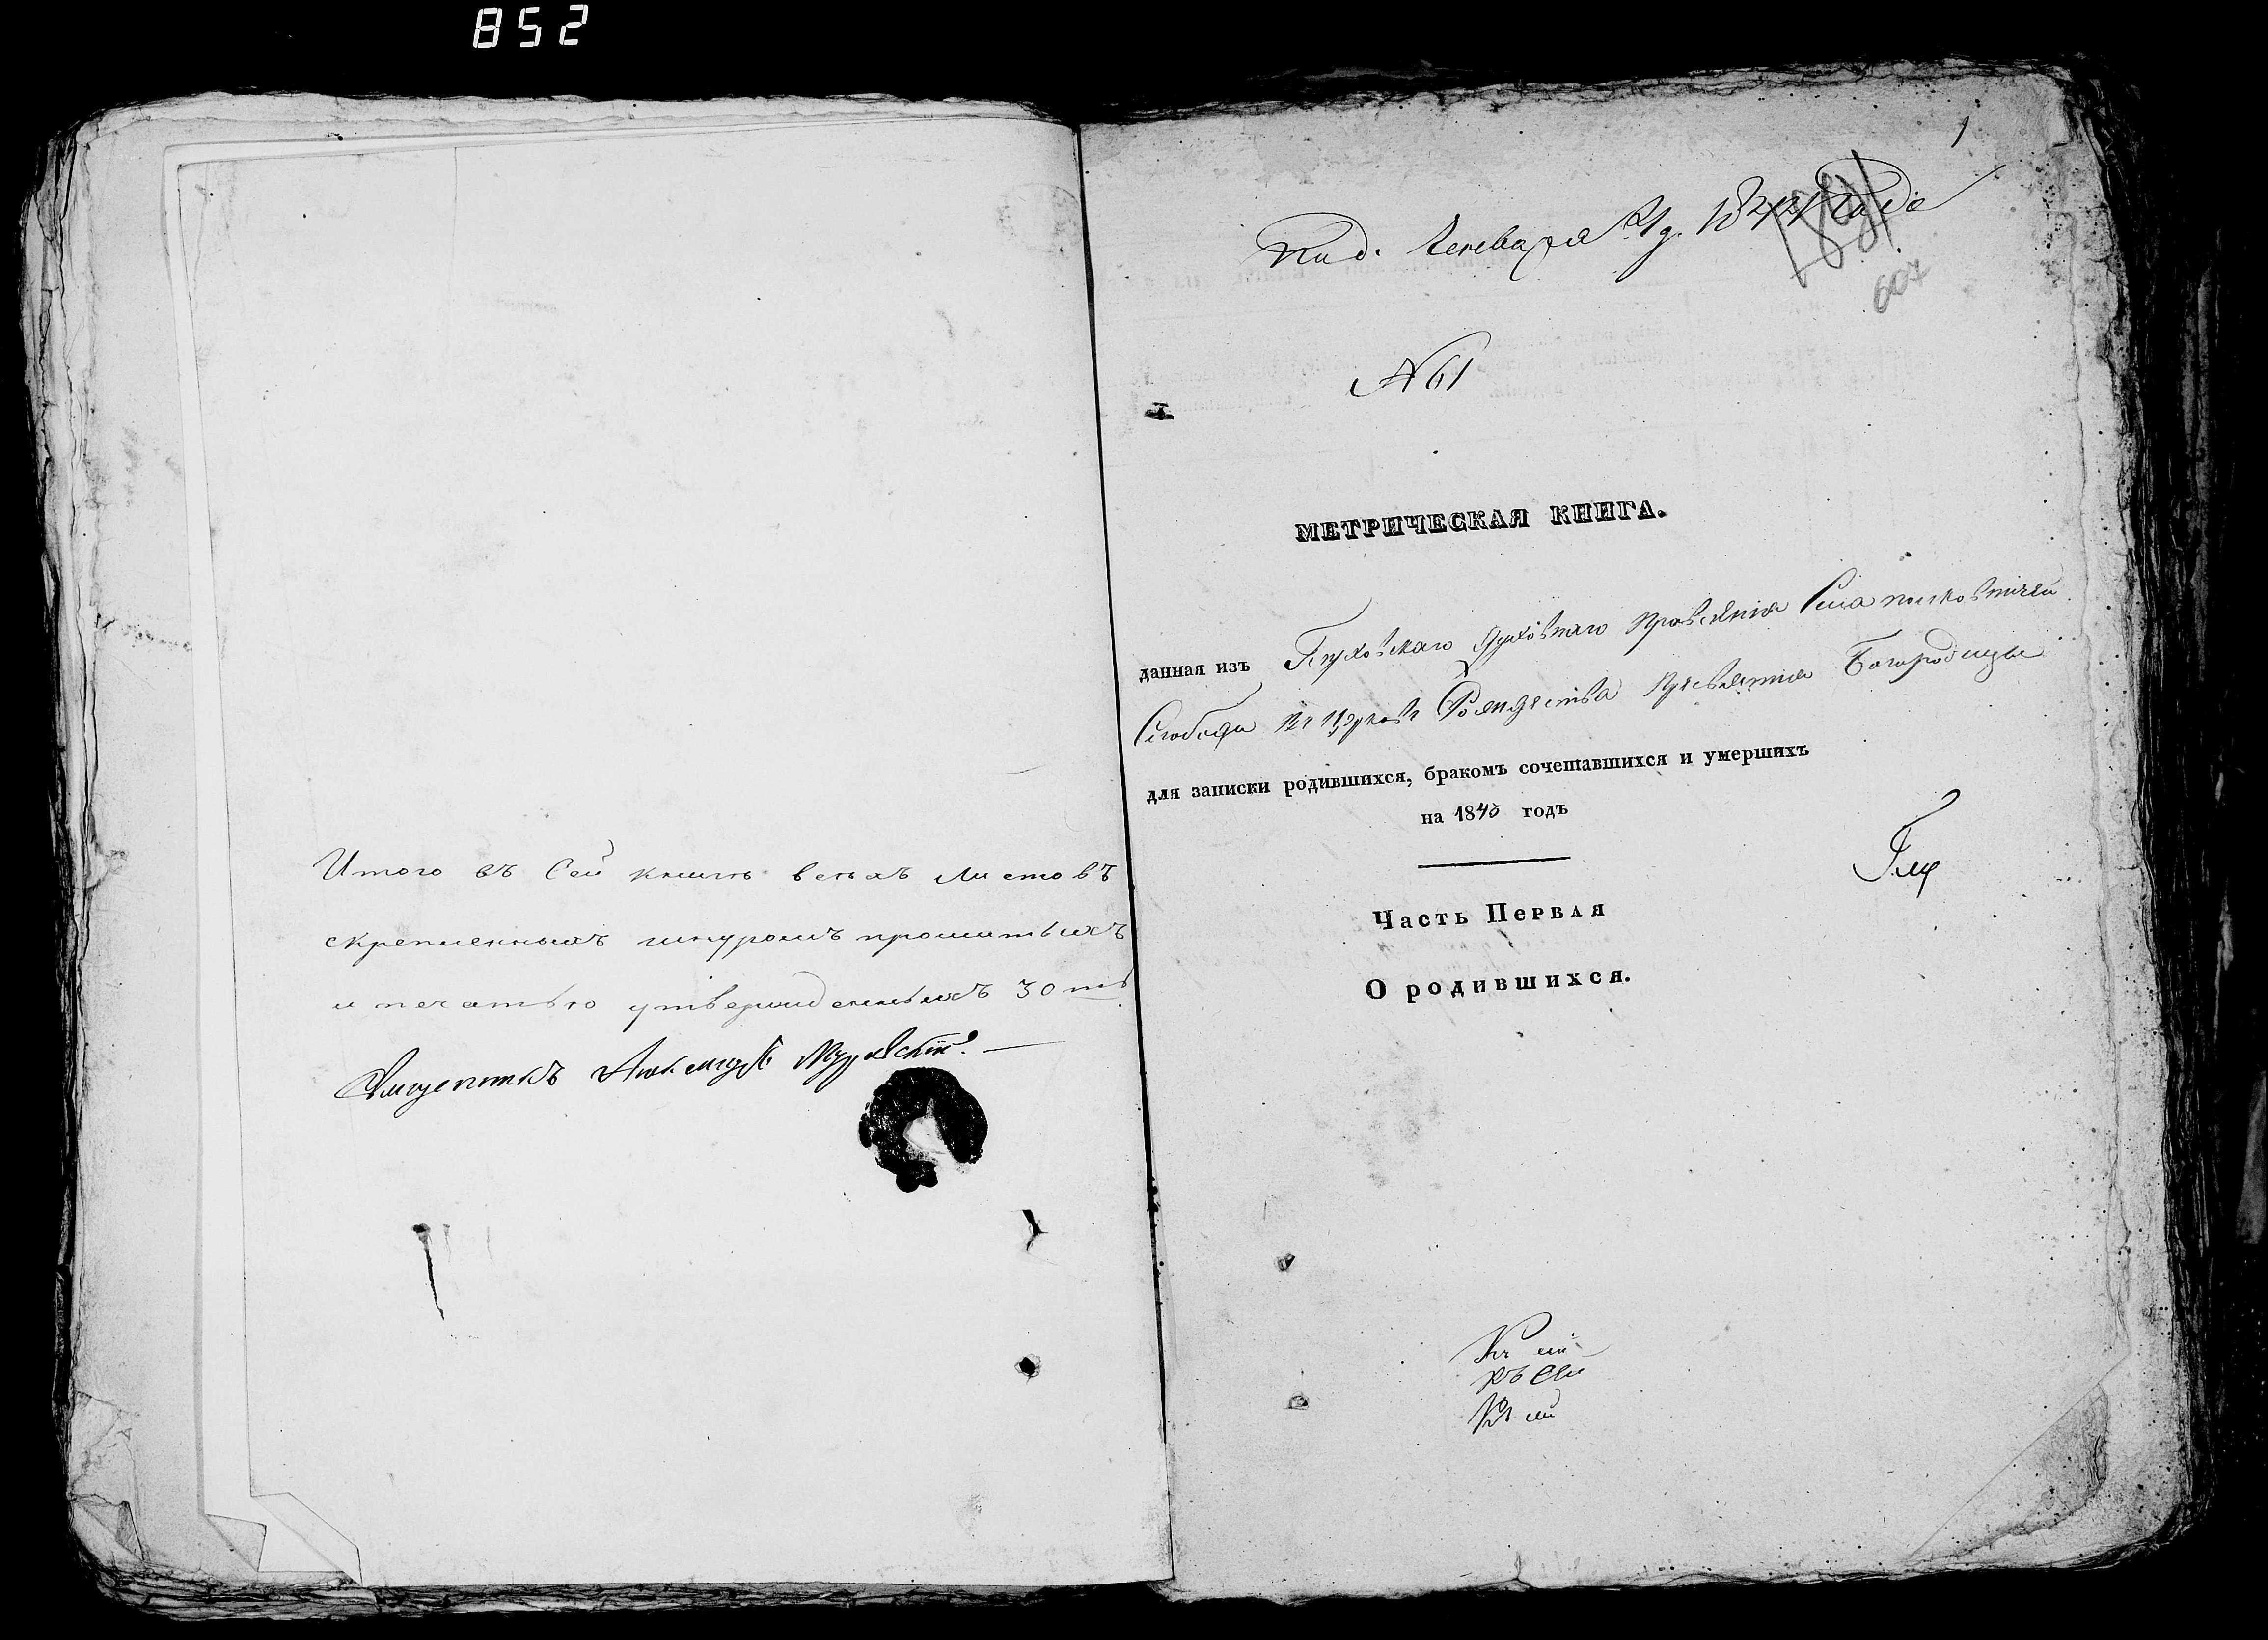 852
Итого въ Сей книгѣ всѣхъ листовъ
скрепленныхъ шнуромъ прошитыхъ
и печатью утвержденныхъ 30ть
1
Генваря 21 д. 1844 Года
607
№ 61
МЕТРИЧЕСКАЯ КНИГА.
данная изъ Глуховскаго Духовнаго Правленія Села полковничей
Слободы къ церкви Рождества Пресвятыя Богородицы
для записки родившихся, бракомъ сочетавшихся и умершихъ
на 1843 годъ
Часть Первая
О родившихся.